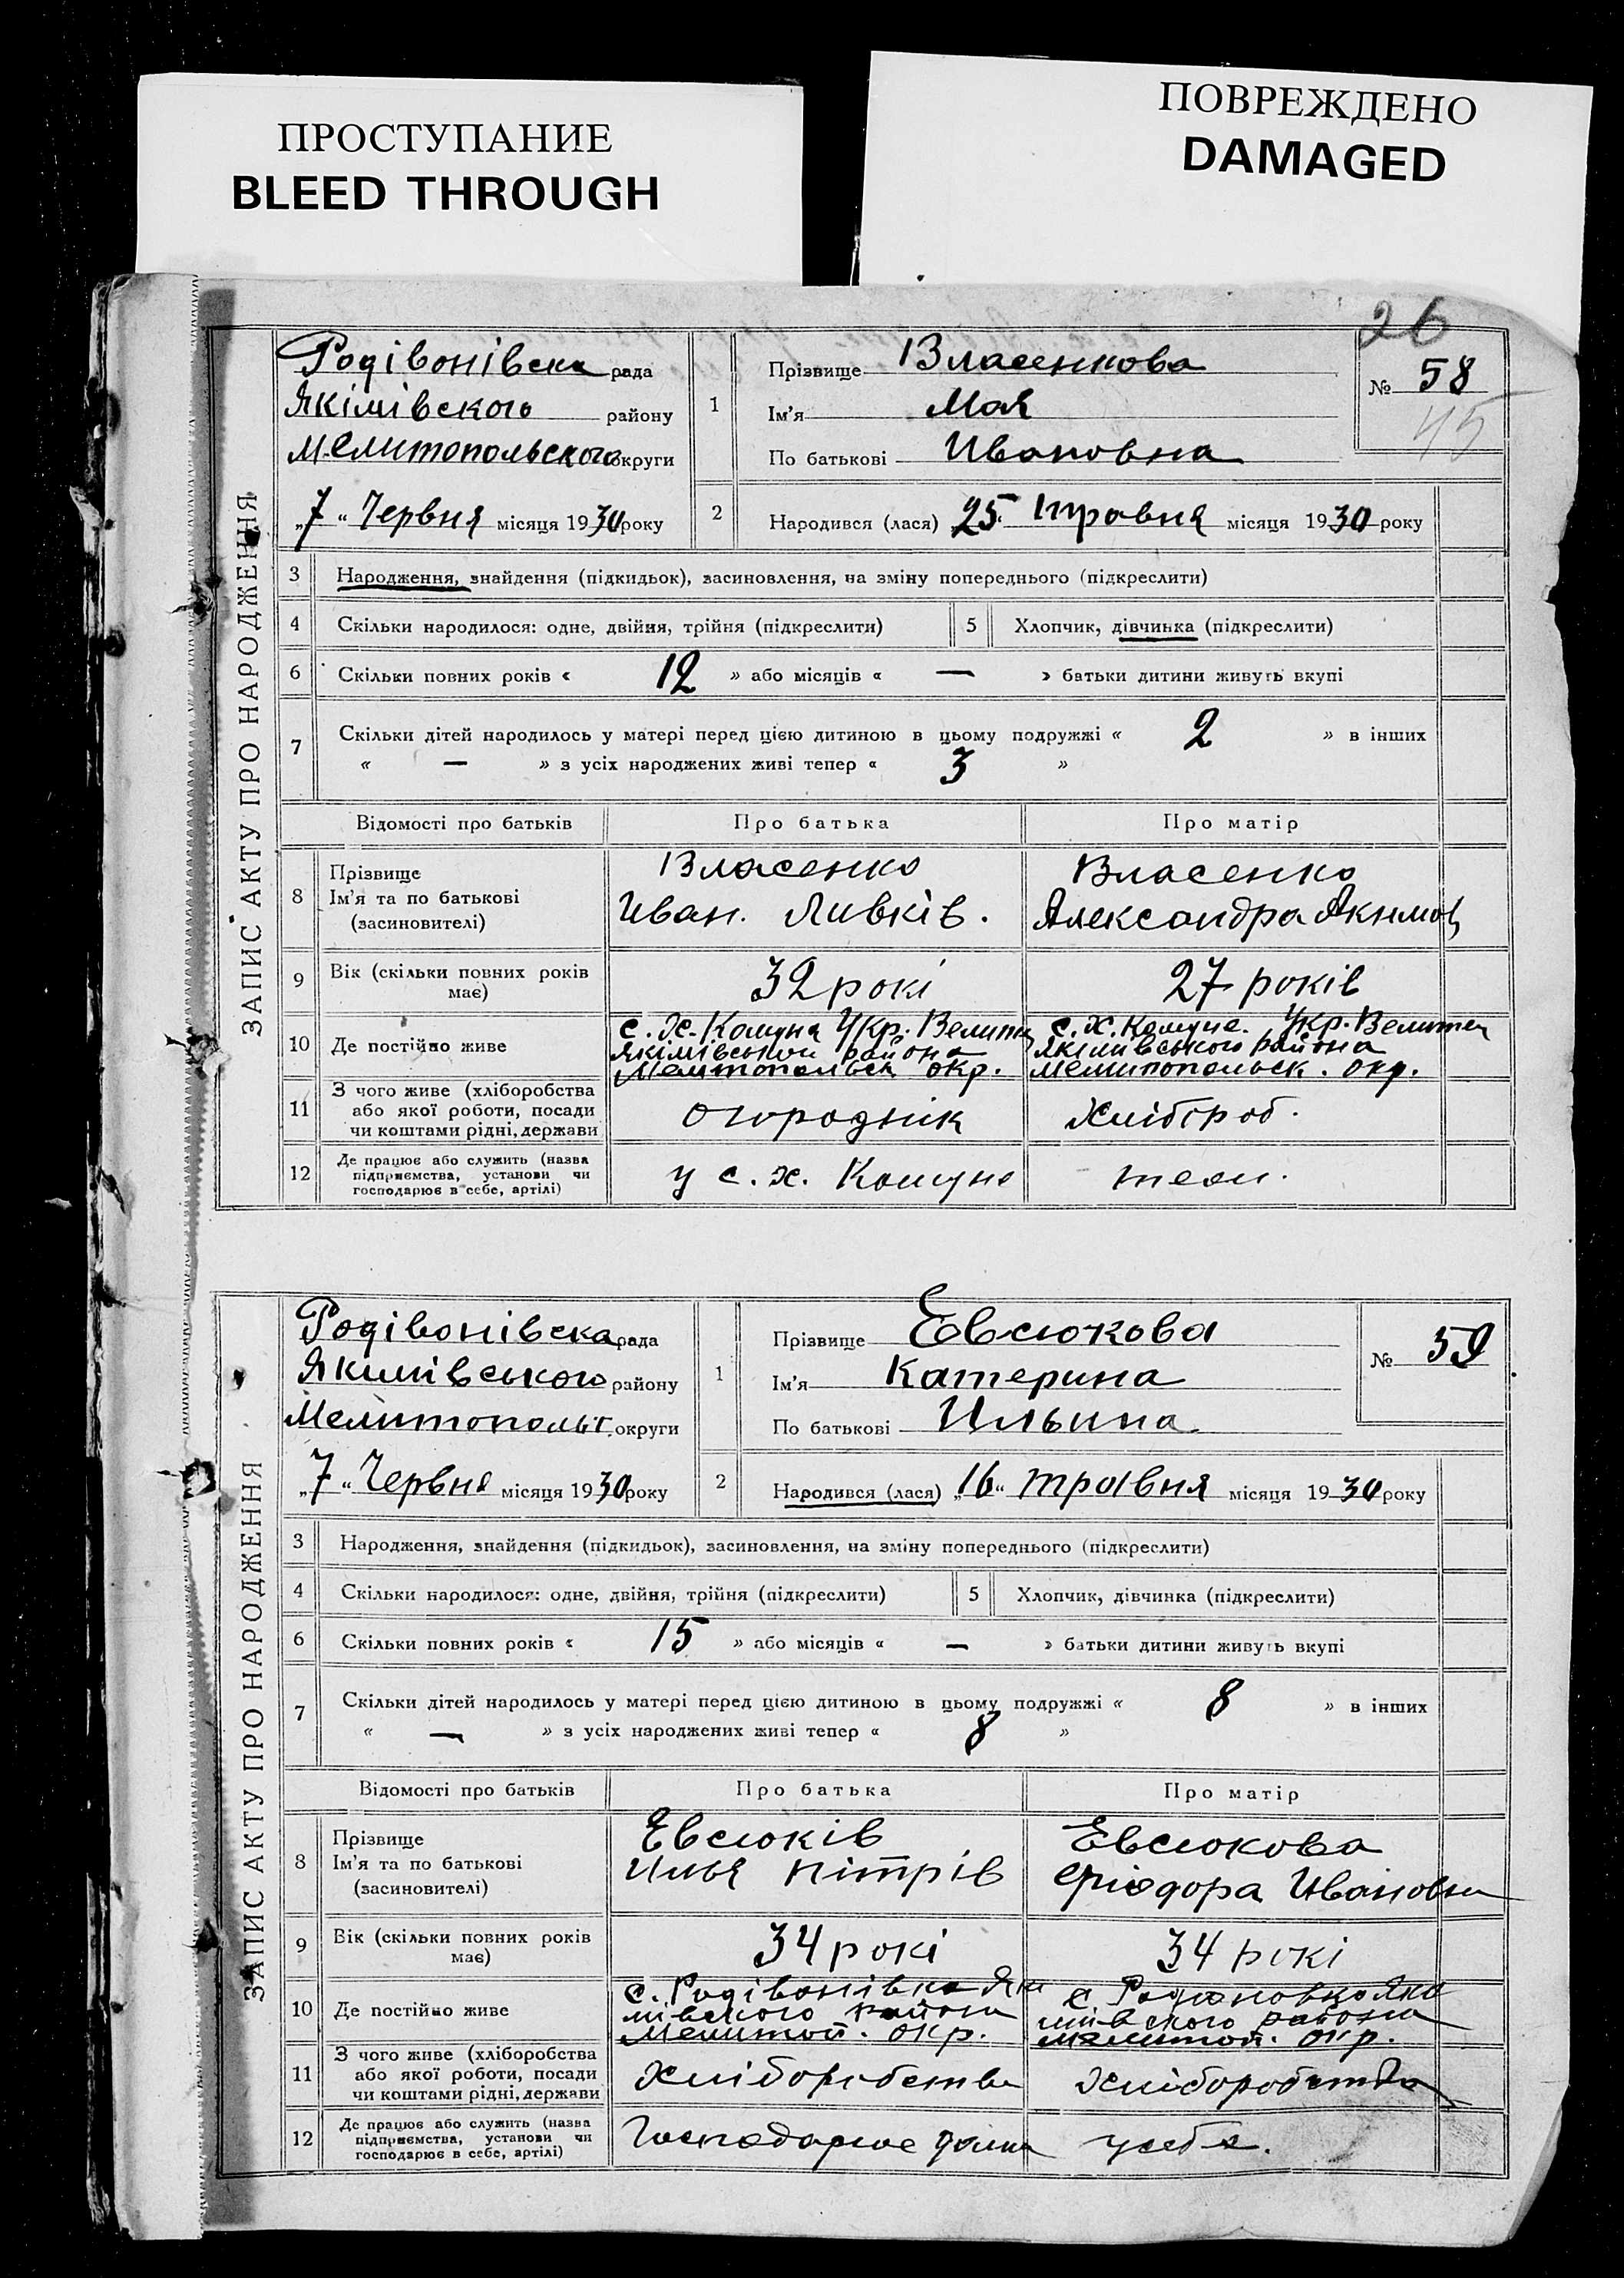 ПРОСТУПАНИЕ
BLEED THROUGH
ПОВРЕЖДЕНО
DAMAGED
26
ЗАПИС АКТУ ПРО НАРОДЖЕННЯ
Родівонівска рада
Якімівского району
Мелитопольского округи
„7“ Червня місяця 1930 року
1 Прізвище Власенкова
Ім'я Мая
По батькові Ивановна
№ 58
45
2 Народився (лася) „25“ травня місяця 1930 року
3 Народження, знайдення (підкидьок), засиновлення, на зміну попереднього (підкреслити)
4 Скільки народилося: одне, двійня, трійня (підкреслити) 5 Хлопчик, дівчинка (підкреслити)
6 Скільки повних років « 12 » або місяців « — » батьки дитини живуть вкупі
7 Скільки дітей народилось у матері перед цією дитиною в цьому подружжі « 2 » в інших
« — » з усіх народжених живі тепер « 3 »
Відомості про батьків Про батька Про матір
8 Прізвище Власенко Власенко
Ім'я та по батькові Иван. Александра Якимов
(засиновителі)
9 Вік (скільки повних років має) 32 рокі 27 років
10 Де постійно живе
с. х. Комуна Укр. с. х. Комуна. Укр.
Якімівськой района Якимівського района
Мелитопольск окр. Мелитопольск. окр.
11 З чого живе (хліборобства
або якої роботи, посади
чи коштами рідні, держави огороднік хлібороб.
12 Де працює або служить (назва
підприємства, установи чи
господарює в себе, артілі) у с. х. Комуне
ЗАПИС АКТУ ПРО НАРОДЖЕННЯ
Родівонівска рада
Якимівського району
Мелитопольс. округи
„7“ Червня місяця 1930 року
1 Прізвище Евсюкова
Ім'я Катерина
По батькові Ильина
№ 59
2 Народився (лася) „16“ травня місяця 1930 року
3 Народження, знайдення (підкидьок), засиновлення, на зміну попереднього (підкреслити)
4 Скільки народилося: одне, двійня, трійня (підкреслити) 5 Хлопчик, дівчинка (підкреслити)
6 Скільки повних років « 15 » або місяців « — » батьки дитини живуть вкупі
7 Скільки дітей народилось у матері перед цією дитиною в цьому подружжі « 8 » в інших
« — » з усіх народжених живі тепер « 8 »
Відомості про батьків Про батька Про матір
8 Прізвище Евсюків Евсюкова
Ім'я та по батькові Илья Пітрів Ивановна
(засиновителі)
9 Вік (скільки повних років має) 34 рокі 34 рокі
10 Де постійно живе
с. Родівонівка Яки с.
мівского района мивского района
Мелитоп. окр. Мелитоп. окр.
11 З чого живе (хліборобства
або якої роботи, посади
чи коштами рідні, держави Хліборобства Хліборобства
12 Де працює або служить (назва
підприємства, установи чи
господарює в себе, артілі) Господарює у себя.